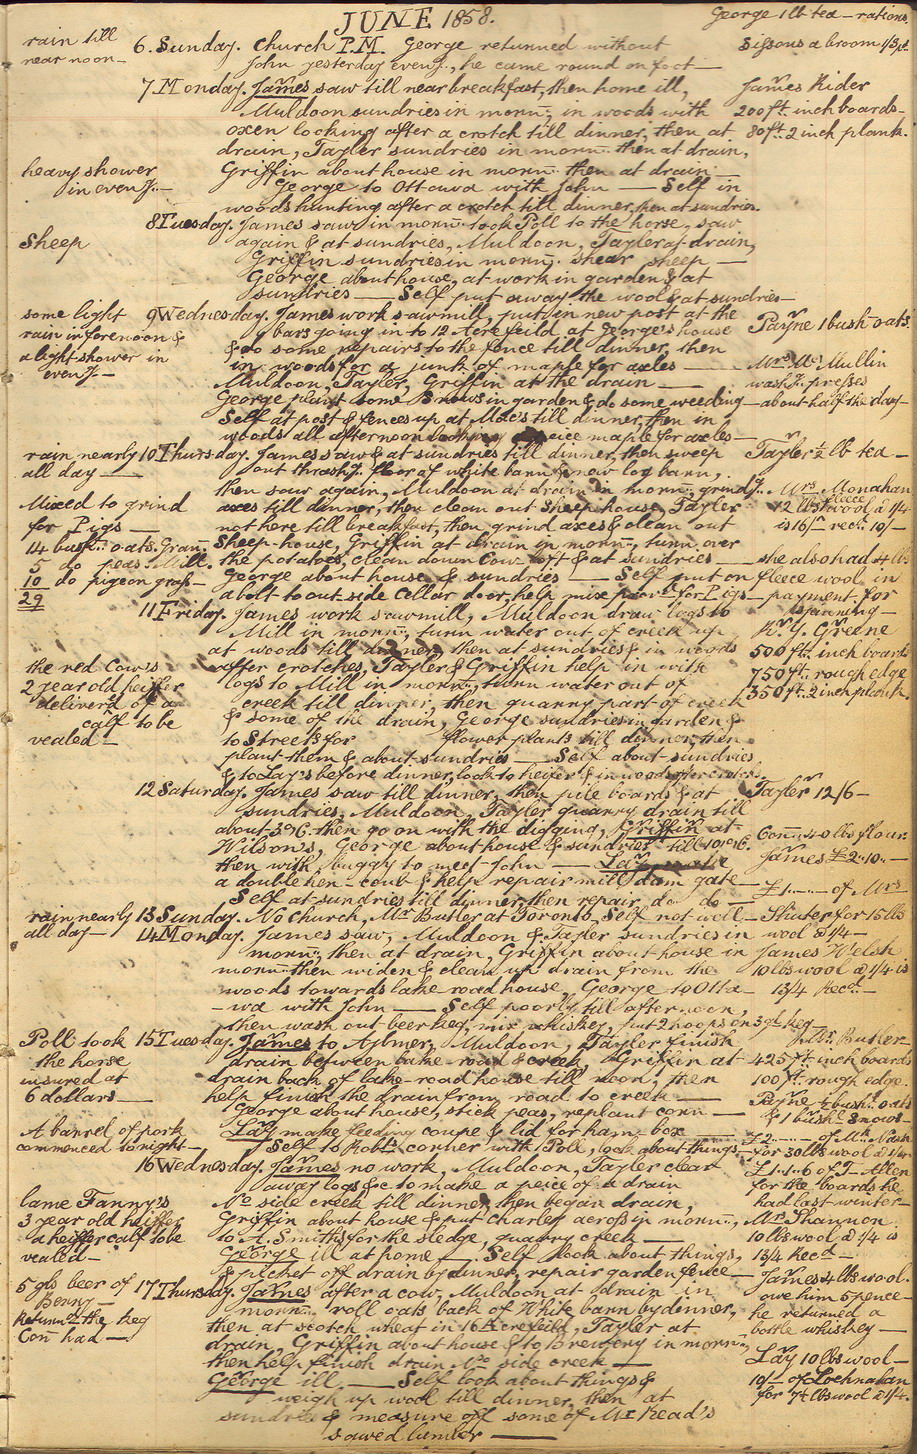 JUNE 1858.
George 1 lb tea – rations.
rain till
near noon –
6. Sunday. Church P.M. George returned without
John yesterday even.g, he came round on foot –
Sissons a broom 1/3 pd.
7 Monday. James saw till near breakfast, then home ill,
Muldoon sundries in morn.g, in woods with
oxen looking after a crotch till dinner, then at
drain, Tayler sundries in morn.g then at drain,
Griffin about house in morn.g then at drain –
George to Ottawa with John — Self in
woods hunting after a crotch till dinner, then at sundries.
James Rider
200 ft. inch boards –
80 ft. 2 inch plank.
heavy shower
in even.g –
8 Tuesday. James saw in morn.g took Poll to the horse, saw
again & at sundries, Muldoon, Tayler at drain,
Griffin sundries in morn.g. shear sheep –
George about house, at work in garden & at
sundries — Self put away the wool & at sundries –
Sheep
some light
rain in forenoon &
a light shower in
even.g –
9 Wednesday. James work sawmill, put in new post at the
bars going in to 12 Acre feild at George's house
& do some repairs to the fence till dinner, then
in woods for a junk of maple for axles —
Muldoon, Tayler, Griffin at the drain —
George plant some Snows in garden & do some weeding –
Self at post & fences up at Mac's till dinner, then in
woods all afternoon looking peice maple for axles –
Payne 1 bush. oats.
Mrs. McMullin
wash.g presses
– about half the day –
rain nearly
all day —
10 Thursday. James saw & at sundries till dinner, then sweep
out thrash.g floor of white barn & now log barn,
then saw again, Muldoon at drain in morn.g, grind.g
axes till dinner, then clean out Sheep house, Tayler
not here till breakfast, then grind axes & clean out
Sheep-house, Griffin at drain in morn.g, turn over
the potatoes, clean down Cow loft & at sundries —
George about house & sundries — Self put on
a bolt to out-side Cellar door, help mix for Pigs –
Tayler ½ lb tea –
Mrs. Monahan
12 lbs fleece wool @ 1/4
is 16/- rec.d 10/-
she also had 4 lbs
fleece wool in
payment for
spinning –
Mixed to grind
for Pigs —
14 bush. oats. Gran.
5 do peas. Mill.
10 do pigeon grass –
29
11 Friday. James work sawmill, Muldoon draw logs to
Mill in morn.g, turn water out of creek up
at woods till dinner, then at sundries & in woods
after crotches, Tayler & Griffin help in with
logs to Mill in morn.g, turn water out of
creek till dinner, then quarry part of creek
& some of the drain, George sundries in garden &
to Streets for flower plants till dinner, then
plant them & about sundries — Self about sundries
& to Lay's before dinner, look to heifer & in woods after crotch.
R. Y. Greene
500 ft. inch boards
750 ft. rough edge
350 ft. 2 inch plank.
the red Cow's
2 year old heiffer
deliver'd of a
calf to be
vealed –
12 Saturday. James saw till dinner, then pile boards & at
sundries, Muldoon, Tayler quarry drain till
about 3 or 6. then go on with the digging, Griffin at
Wilson's, George about house & sundries till 10 or 6.
then with buggy to meet John — Lay make
a double hen-coub & help repair mill dam gate –
Self at sundries till dinner, then repair do do –
Tayler 12/6 –
Con.n 40 lbs flour.
James £2..10..–
£1..–..– of Mrs
Shuter for 15 lbs
wool @ 1/4 –
rain nearly
all day –
13 Sunday. No Church, Mr Butler at Toronto, Self not well –
14 Monday. James saw, Muldoon & Tayler sundries in
morn.g, then at drain, Griffin about house in
morn.g then widen & clean up drain from the
woods towards lake road house, George to Otta-
-wa with John — Self poorly till afternoon,
then wash out beer keg, mix whiskey, put 2 hoops on 3 gl. keg –
James Welsh
10 lbs wool @ 1/4 is
13/4 Rec.d –
Poll took
the horse
insured at
6 dollars —
15 Tuesday. James to Aylmer, Muldoon, Tayler finish
drain between lake-road & creek, Griffin at
drain back of lake-road house till noon, then
help finish the drain from road to creek —
George about house, stick peas, replant corn —
Lay make feeding coupe & lid for ham-box
Self to Rob.ts corner with Poll, look about things –
Mr. Butler
425 ft. inch boards
100 ft. rough edge.
Payne ½ bush. oats
& 1 bush. Snows –
£2..–..– of Mr Nash
for 30 lbs wool @ 1/4
A barrel of pork
commenced tonight –
16 Wednesday. James no work, Muldoon, Tayler clear
away logs &c to make a peice of a drain
No. side creek till dinner, then began drain,
Griffin about house & put Charley across in morn.g,
to A. Smiths for the sledge, quarry creek –
George ill at home — Self look about things,
& pitchet off drain by dinner, repair garden fence –
£1..1..6 of T. Allen
for the boards he
had last winter –
Mr. Shannon
10 lbs wool @ 1/4 is
13/4 Rec.d –
lame Fanny's
3 year old heiffer
a heiffer calf to be
vealed –
5 gls beer of
Benny –
Return.d the keg
Con.n had —
17 Thursday. James after a cow, Muldoon at drain in
morn.g. roll oats back of White barn by dinner,
then at scotch wheat in 16 Acre feild, Tayler at
drain, Griffin about house & to Brewery in morn.g,
then help finish drain No. side creek —
George ill — Self look about things &
weigh up wool till dinner, then at
sundries & measure off some of Mr Read's
sawed lumber —
James 4 lbs wool.
owe him 5 pence –
he returned a
bottle whiskey —
Lay 10 lbs wool –
10/- of Lochnahan
for 7½ lbs wool @ 1/4.